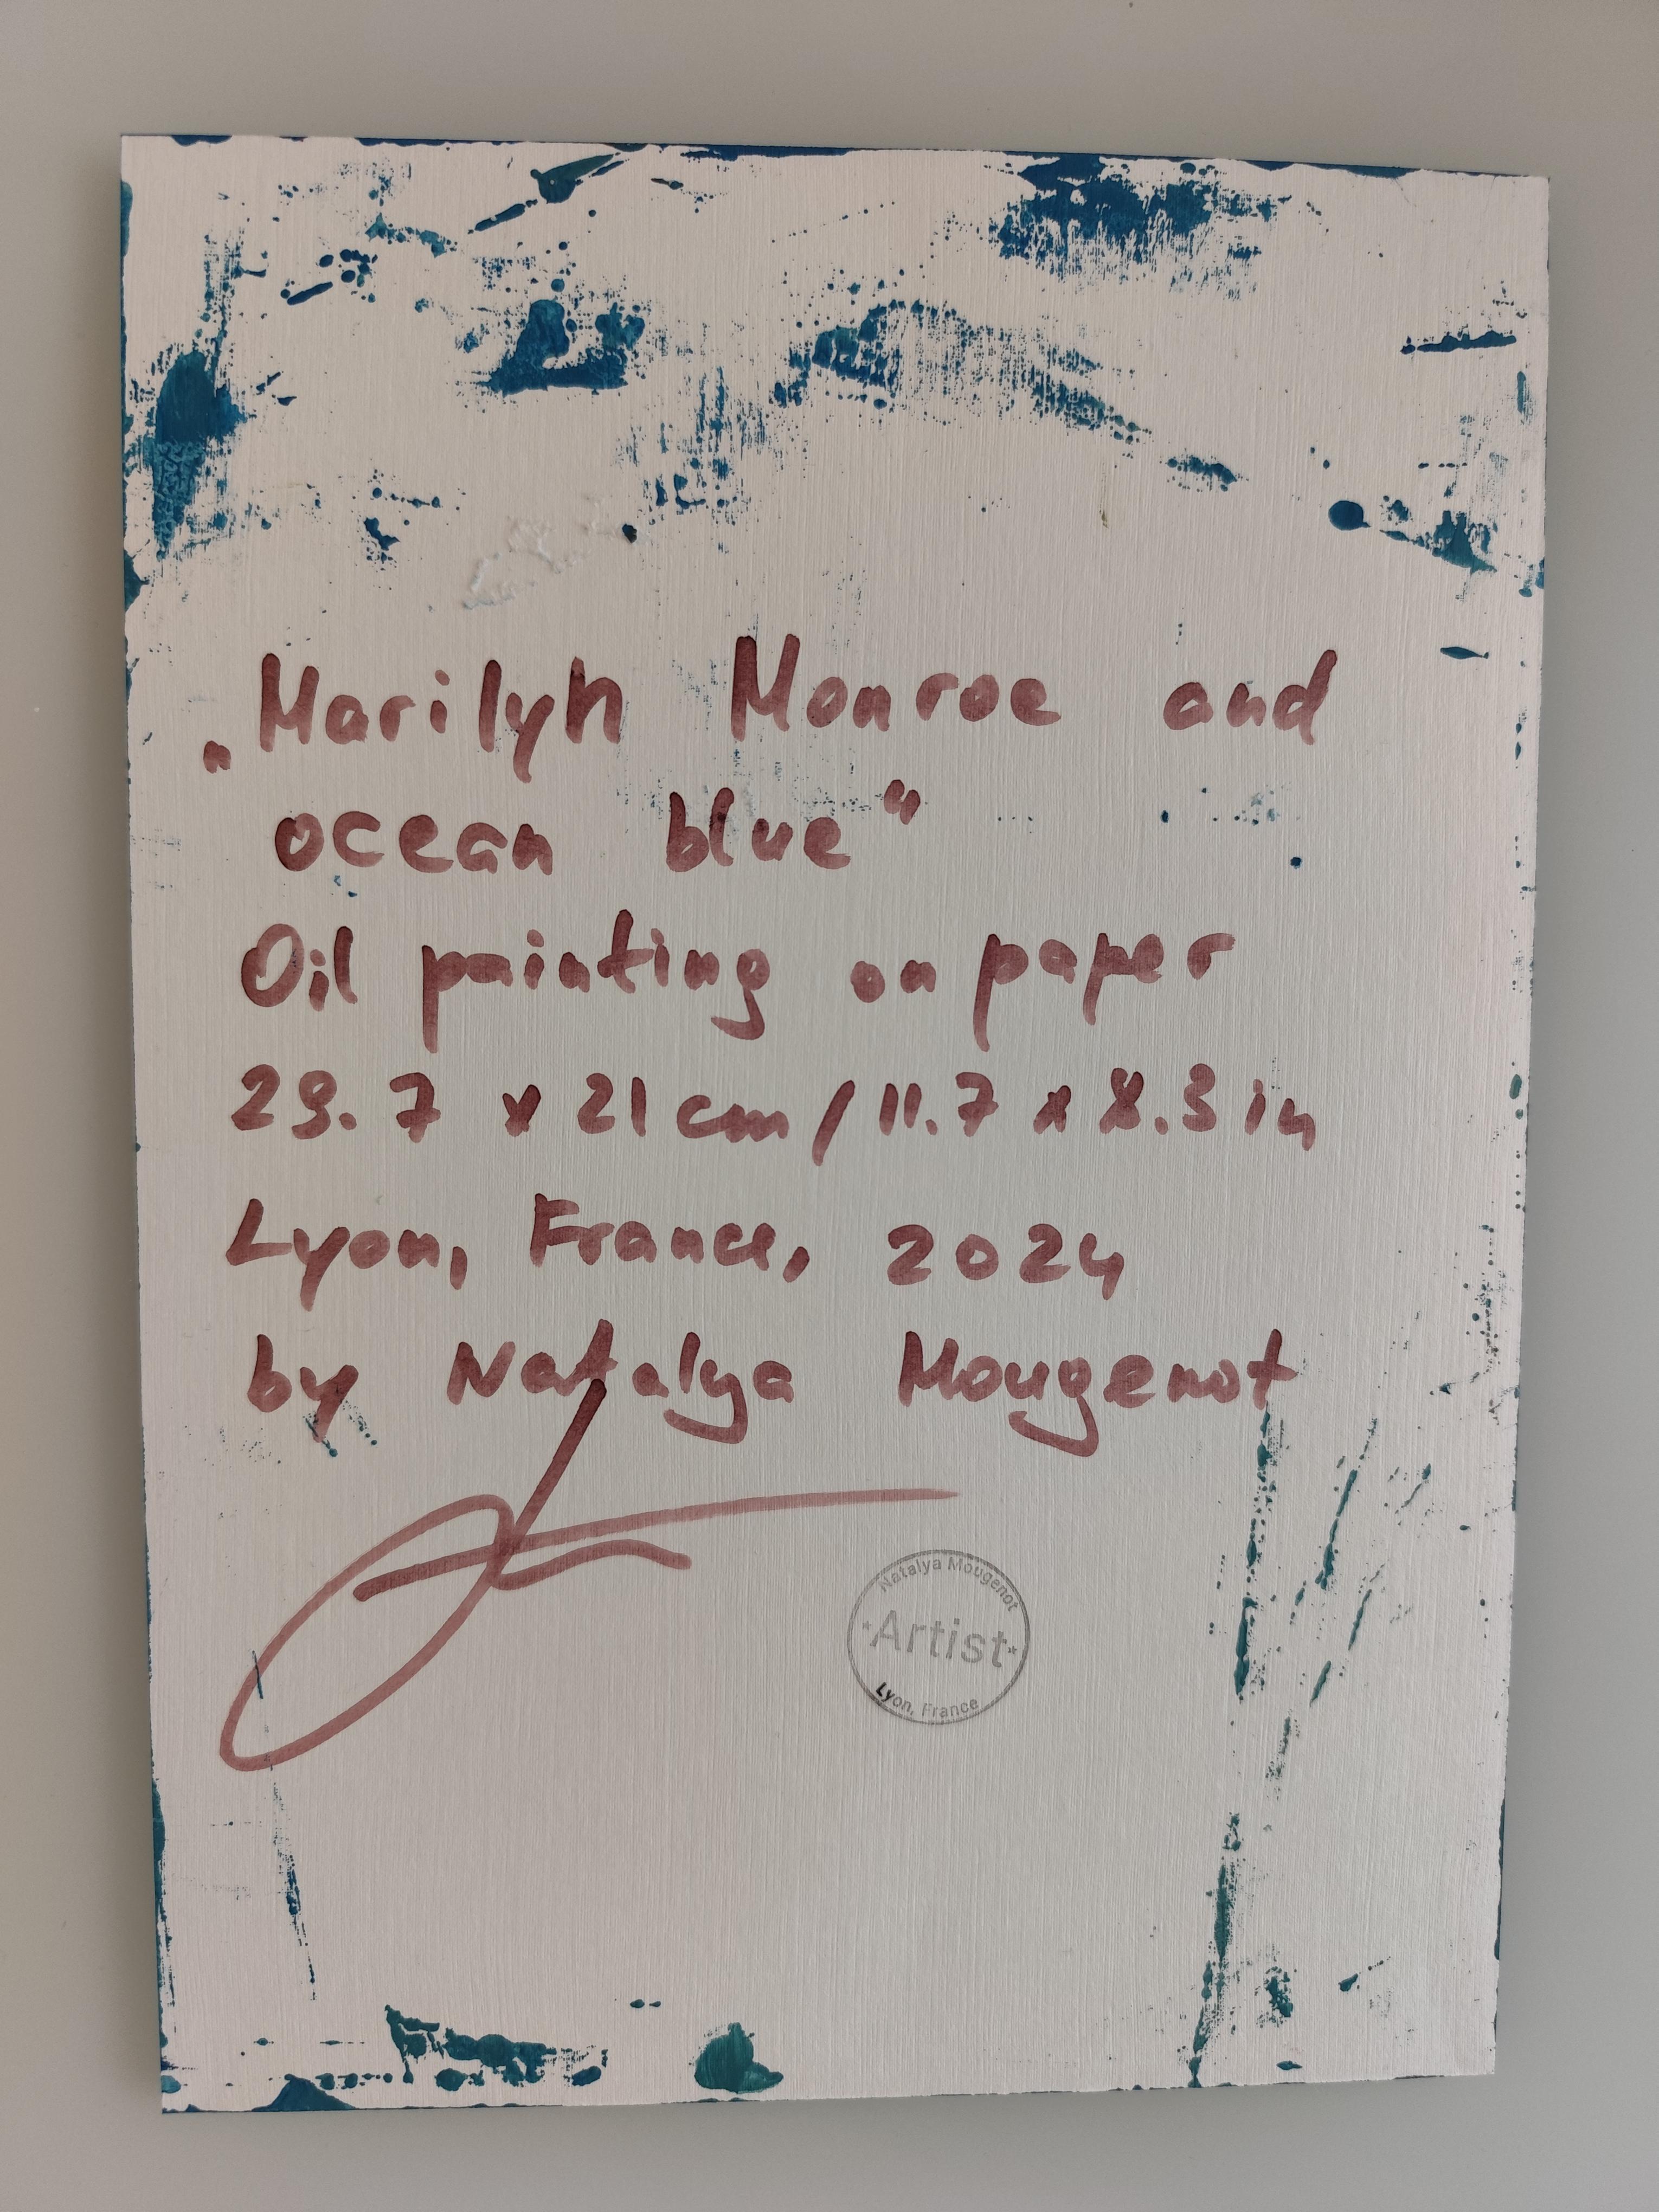 „Marilyn Monroe and
ocean blue“
Oil painting on paper
29.7 x 21 cm / 11.7 x 8.3 in
Lyon, France, 2024
by Natalya Mougenot
Natalya Mougenot
Artist
Lyon, France